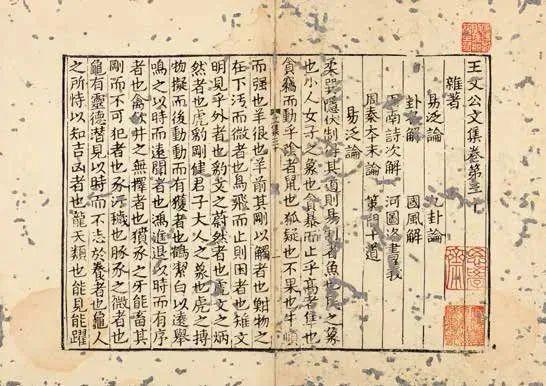 王文公文集卷第三十
雜著
易泛論 九卦論
卦名解 國風解
周南詩次解 河圖洛書義
周秦本末論 策問十道
易泛論
柔巽隱伏制得其道則易制者魚也民之象
也小人女子之象也貪暴而止乎高者隼也
貪竊而動乎陰者鼠也狐疑也不果也牛順
而強也羊很也羊前其剛以觸者也鮒物之
在下汚而微者也鳥飛而止則困者也雉文
明見乎外者也豹文之蔚然者也虎文之炳
然者也虎豹剛健君子大人之象也虎之搏
物擬而後動動而有獲者也鶴潔白以遠舉
鳴之以時而遠聞者也鴻進退以時而有序
者也禽飲井之無擇者也豶豕之牙能畜其
剛而不可犯者也豕汙穢也豚豕之微者也
龜有靈德潛見以時而不志於養者也龜人
之所恃以知吉凶者也龍天類也能見能躍